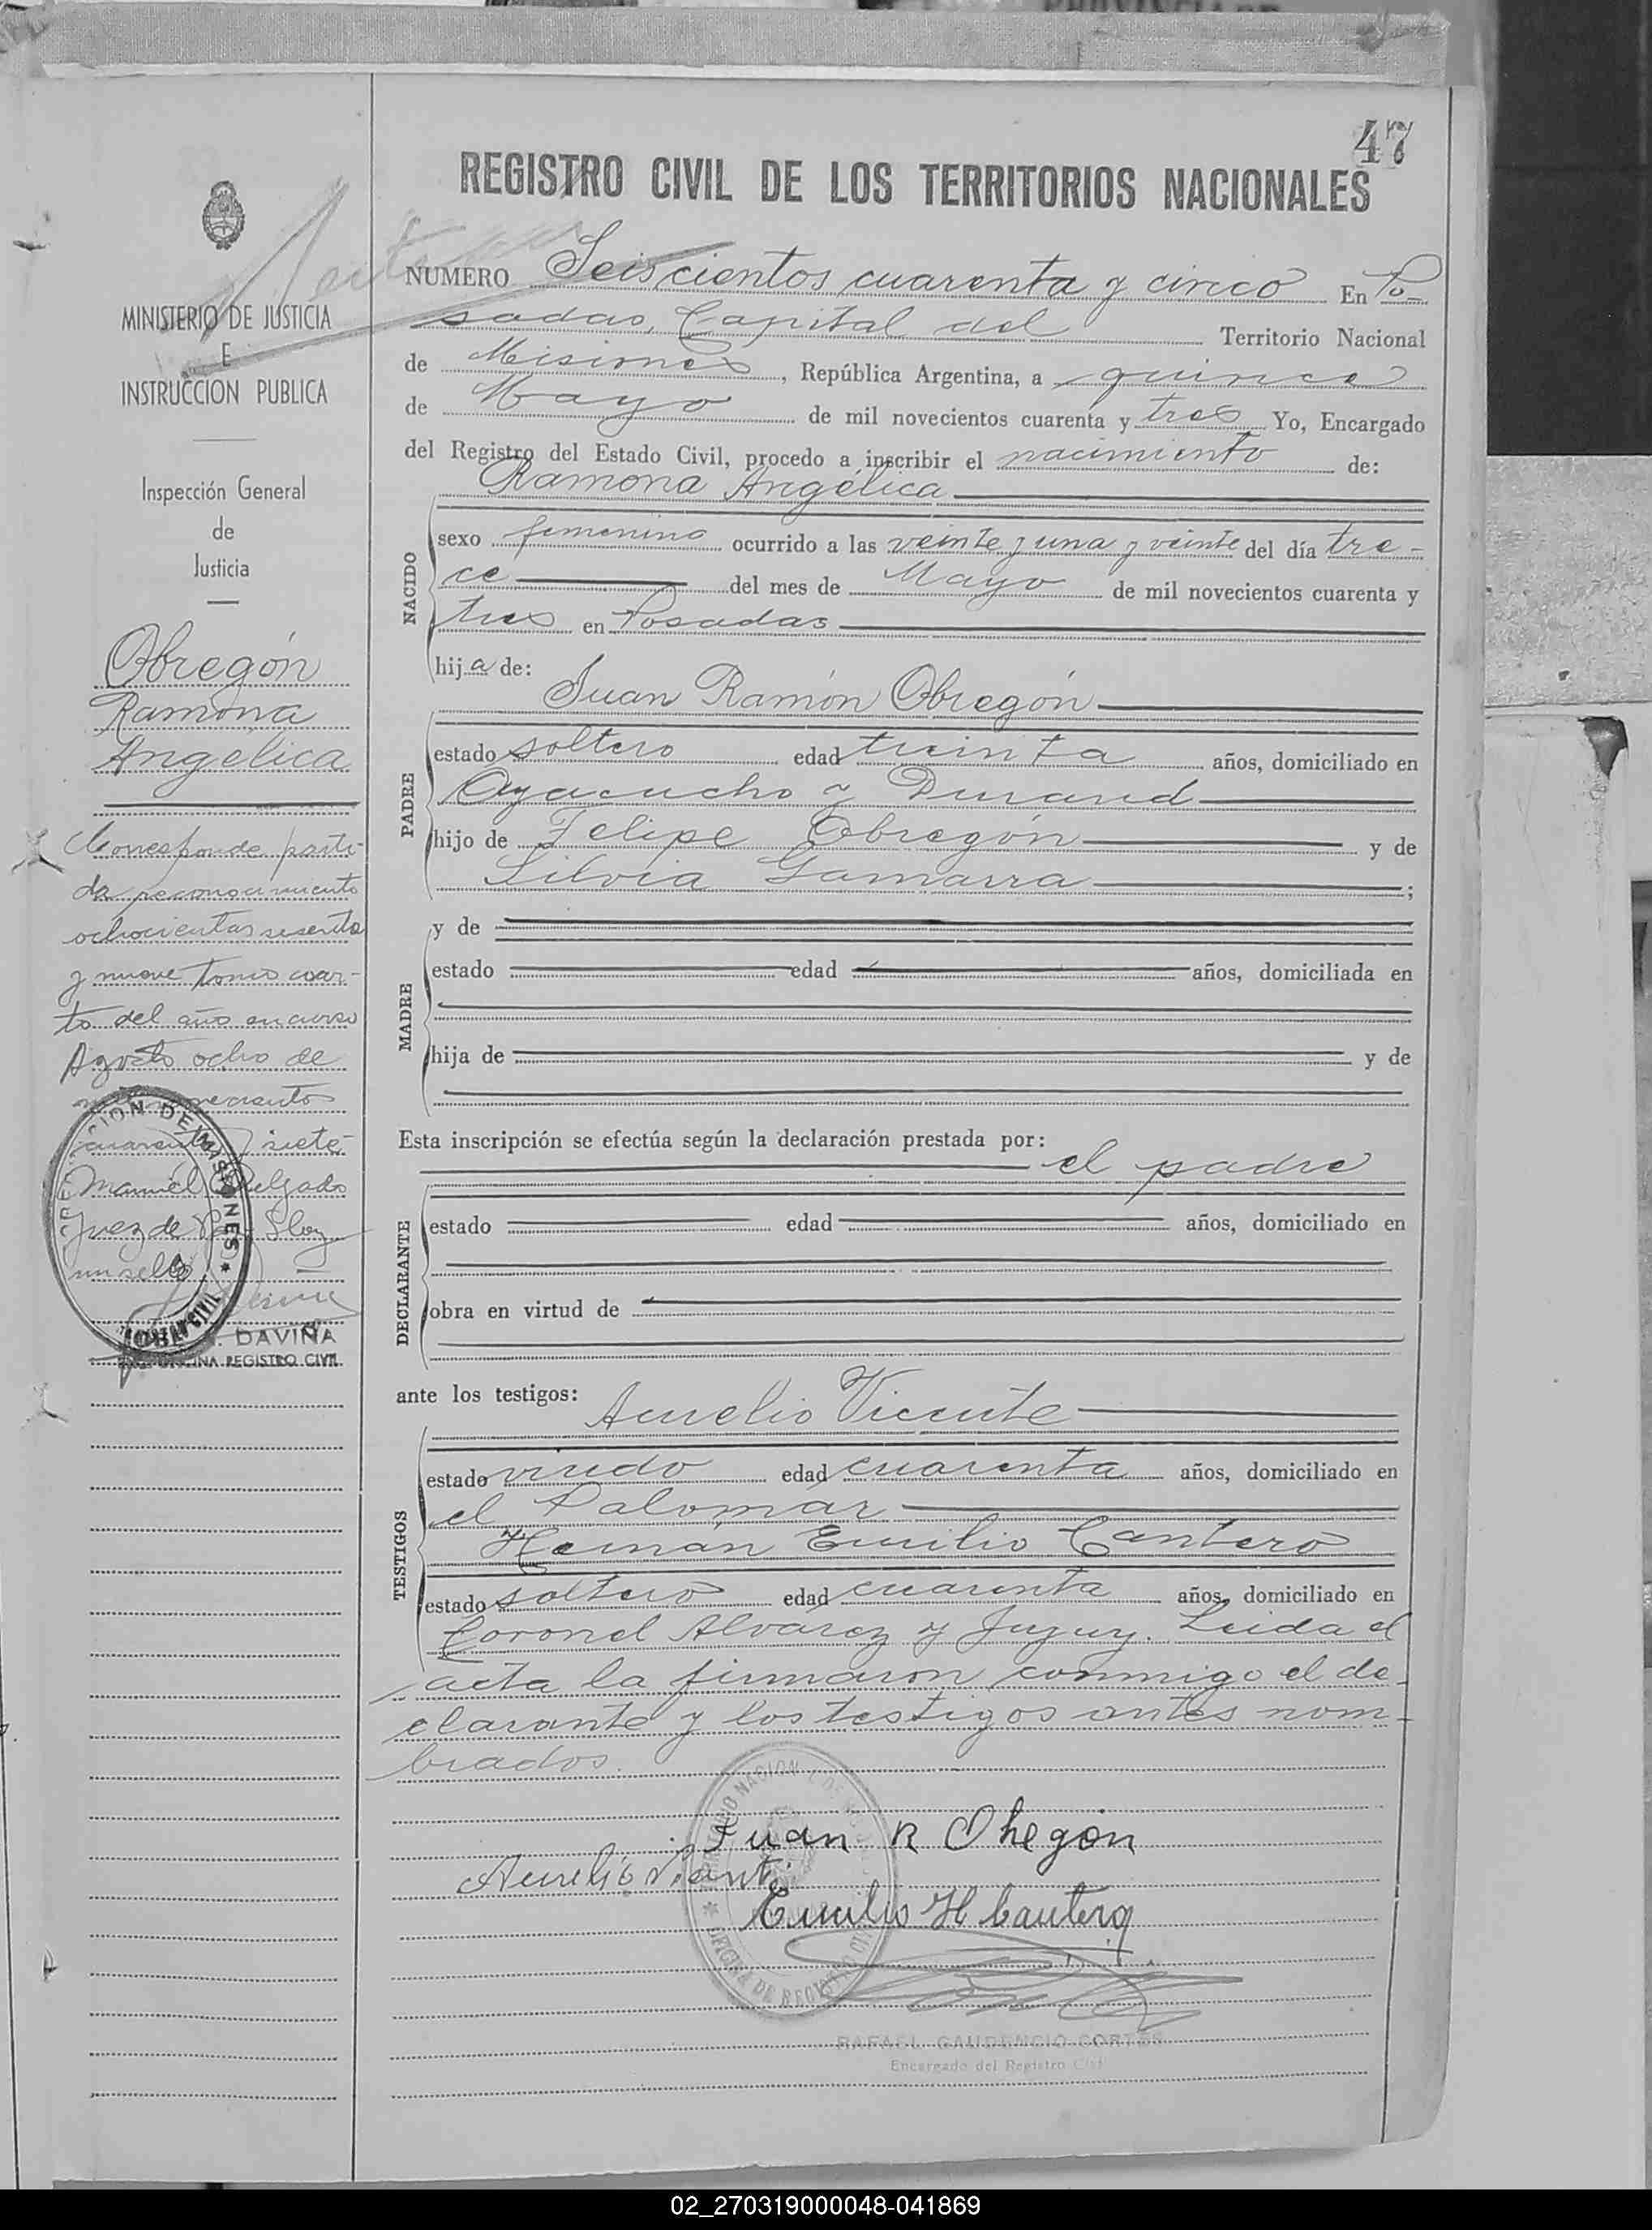 47
REGISTRO CIVIL DE LOS TERRITORIOS NACIONALES
MINISTERIO DE JUSTICIA
E
INSTRUCCION PUBLICA
Inspección General
de
Justicia
Obregón
Ramona
Angélica
Corresponde parti-
da reconocimiento
ochocientas sesenta
y nueve tomo cuar-
to del año en curso
Agosto ocho de
mil novecientos
cuarenta y siete-
Manuel Delgado
Juez de Paz Hay
un sello
DAVIÑA
OFICINA REGISTRO CIVIL
NUMERO Seiscientos cuarenta y cinco En Po-
sadas, Capital del Territorio Nacional
de Misiones, República Argentina, a quince
de Mayo de mil novecientos cuarenta y tres Yo, Encargado
del Registro del Estado Civil, procedo a inscribir el nacimiento de:
Ramona Angélica
NACIDO
sexo femenino ocurrido a las veinte y una y veinte del día tre-
ce del mes de Mayo de mil novecientos cuarenta y
tres en Posadas
hija de:
Juan Ramón Obregón
PADRE
estado soltero edad treinta años, domiciliado en
Ayacucho y Durand
hijo de Felipe Obregón y de
Silvia Gamarra;
MADRE
y de
estado edad años, domiciliada en
hija de y de
Esta inscripción se efectúa según la declaración prestada por:
el padre
DECLARANTE
estado edad años, domiciliado en
obra en virtud de
ante los testigos:
Aurelio Vicente
TESTIGOS
estado viudo edad cuarenta años, domiciliado en
el Palomar
Hernán Emilio Cantero
estado soltero edad cuarenta años, domiciliado en
Coronel Alvarez y Jujuy. Leida el
acta la firmaron conmigo el de-
clarante y los testigos antes nom-
brados.
Juan R Obregón
Aurelio
Emilio H Cantero
RAFAEL GAUDENCIO CORTES
Encargado del Registro Civil
02_270319000048-041869